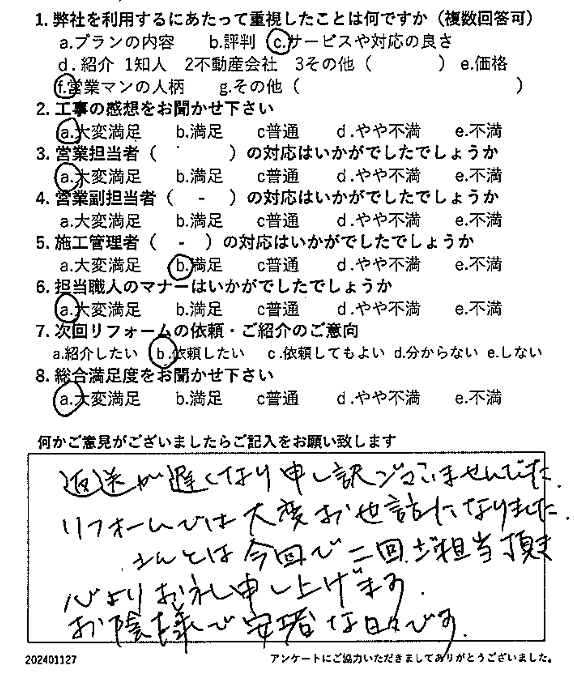 1. 弊社を利用するにあたって重視したことは何ですか（複数回答可）
a.プランの内容 b.評判 c.サービスや対応の良さ
d.紹介 1知人 2不動産会社 3その他（ ） e.価格
f.営業マンの人柄 g.その他（ ）
2. 工事の感想をお聞かせ下さい
a.大変満足 b.満足 c普通 d.やや不満 e.不満
3. 営業担当者（ ）の対応はいかがでしたでしょうか
a.大変満足 b.満足 c普通 d.やや不満 e.不満
4. 営業副担当者（ - ）の対応はいかがでしたでしょうか
a.大変満足 b.満足 c普通 d.やや不満 e.不満
5. 施工管理者（ - ）の対応はいかがでしたでしょうか
a.大変満足 b.満足 c普通 d.やや不満 e.不満
6. 担当職人のマナーはいかがでしたでしょうか
a.大変満足 b.満足 c普通 d.やや不満 e.不満
7. 次回リフォームの依頼・ご紹介のご意向
a.紹介したい b.依頼したい c.依頼してもよい d.分からない e.しない
8. 総合満足度をお聞かせ下さい
a.大変満足 b.満足 c普通 d.やや不満 e.不満
何かご意見がございましたらご記入をお願い致します
返送が遅くなり申し訳ございませんでした。
リフォームでは大変お世話になりました。
さんとは今回で二回ご担当頂き
心よりお礼申し上げます。
お陰様で安堵な日々です。
202401127
アンケートにご協力いただきましてありがとうございました。